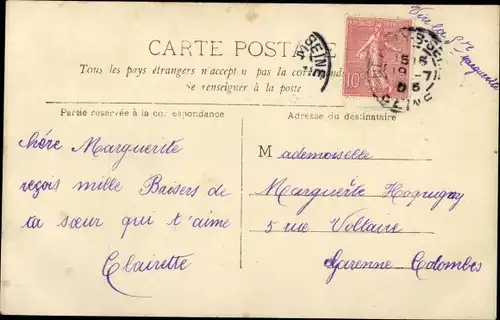 CARTE POSTALE
Tous les pays étrangers n'acceptent pas la correspondance
se renseigner à la poste
Partie réservée à la correspondance
Adresse du destinataire
10c
SEINE
SEINE
chère Marguerite
reçois mille Baisers de
ta sœur qui t'aime
Clairette
Mademoiselle
Marguerite
5 rue Voltaire
Garenne Colombes